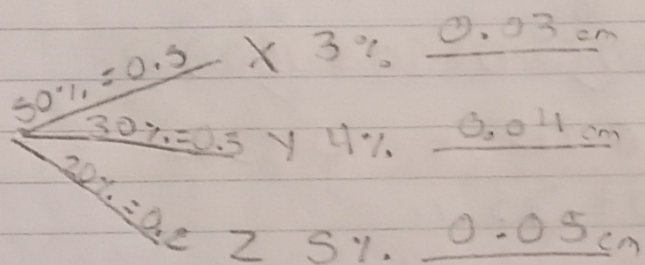 50%=0.5 X 3% 0.03 cm
30%=0.3 Y 4% 0.04 cm
20%=0.2 Z 5% 0.05 cm